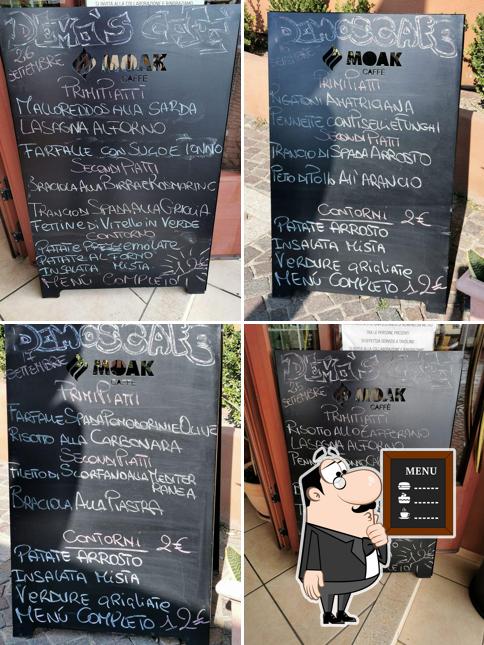 DEMO'S CAFÈ
26
SETTEMBRE
MOAK
CAFFÈ
PRIMI PIATTI
MALLOREDDOS ALLA SARDA
LASAGNA AL FORNO
FARFALLE CON SUGO E TONNO
SECONDI PIATTI
BRACIOLA ALLA BIRRA E ROSMARINO
TRANCIO DI SPADA ALLA GRIGLIA
FETTINE DI VITELLO IN VERDE
CONTORNO
PATATE PREZZEMOLATE
PATATE AL FORNO
INSALATA MISTA
MENÙ COMPLETO 12€
DEMO'S CAFÈ
SETTEMBRE
MOAK
CAFFÈ
PRIMI PIATTI
RIGATONI AMATRICIANA
PENNETTE CON PISELLI E FUNGHI
SECONDI PIATTI
TRANCIO DI SPADA ARROSTO
PETTO DI POLLO ALL'ARANCIO
CONTORNI 2€
PATATE ARROSTO
INSALATA MISTA
VERDURE GRIGLIATE
MENÙ COMPLETO 12€
DEMO'S CAFÈ
1
SETTEMBRE
MOAK
CAFFÈ
PRIMI PIATTI
FARFALLE SPADA POMODORINI E OLIVE
RISOTTO ALLA CARBONARA
SECONDI PIATTI
FILETTO DI SCORFANO ALLA MEDITER
RANEA
BRACIOLA ALLA PIASTRA
CONTORNI 2€
PATATE ARROSTO
INSALATA MISTA
VERDURE GRIGLIATE
MENÙ COMPLETO 12€
DEMO'S CAFÈ
SETTEMBRE
MOAK
CAFFÈ
PRIMI PIATTI
RISOTTO ALLO ZAFFERANO
LASAGNA AL FORNO
MENU